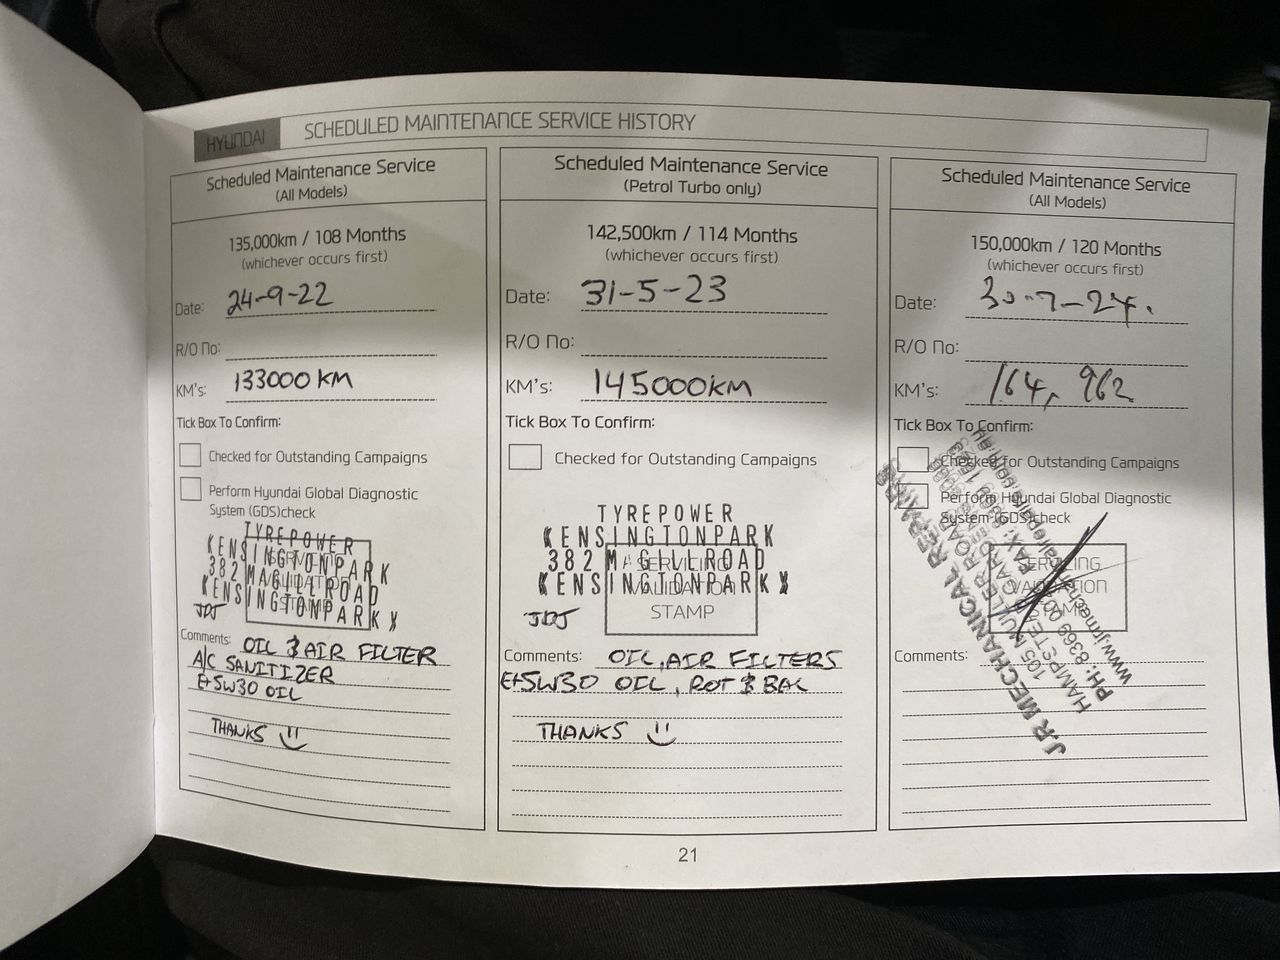 HYUNDAI
SCHEDULED MAINTENANCE SERVICE HISTORY
Scheduled Maintenance Service
(All Models)
135,000km / 108 Months
(whichever occurs first)
Date: 24-9-22
R/O No:
KM's: 133000 KM
Tick Box To Confirm:
Checked for Outstanding Campaigns
Perform Hyundai Global Diagnostic
System (GDS)check
TYREPOWER
KENSINGTONPARK
382 MAGILLROAD
KENSINGTONPARK
JDJ
Comments: OIL & AIR FILTER
A/C SANITIZER
E+5W30 OIL
THANKS
Scheduled Maintenance Service
(Petrol Turbo only)
142,500km / 114 Months
(whichever occurs first)
Date: 31-5-23
R/O No:
KM's: 145000KM
Tick Box To Confirm:
Checked for Outstanding Campaigns
TYREPOWER
KENSINGTONPARK
382 MAGILLROAD
KENSINGTONPARK
SERVICING
VALIDATION
STAMP
JDJ
Comments: OIL, AIR FILTERS
E+5W30 OIL, ROT & BAL
THANKS
Scheduled Maintenance Service
(All Models)
150,000km / 120 Months
(whichever occurs first)
Date: 30-7-24.
R/O No:
KM's: 164, 962
Tick Box To Confirm:
Checked for Outstanding Campaigns
Perform Hyundai Global Diagnostic
System (GDS)check
SERVICING
VALIDATION
STAMP
J.R MECHANICAL REPAIRS
105 MULLER ROAD
HAMPSTEAD
PH: 8369 FAX: 8369
www.jrmechanicalrepairs.com.au
Comments:
21